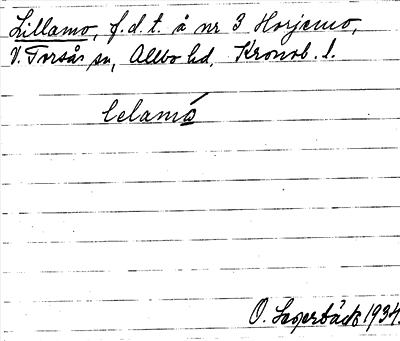 Lillamo, f.d.t. å nr 3 Horjemo,
V. Torsås sn, Allbo hd, Kronob. l.
lelamó
O. Lagerbäck 1934.